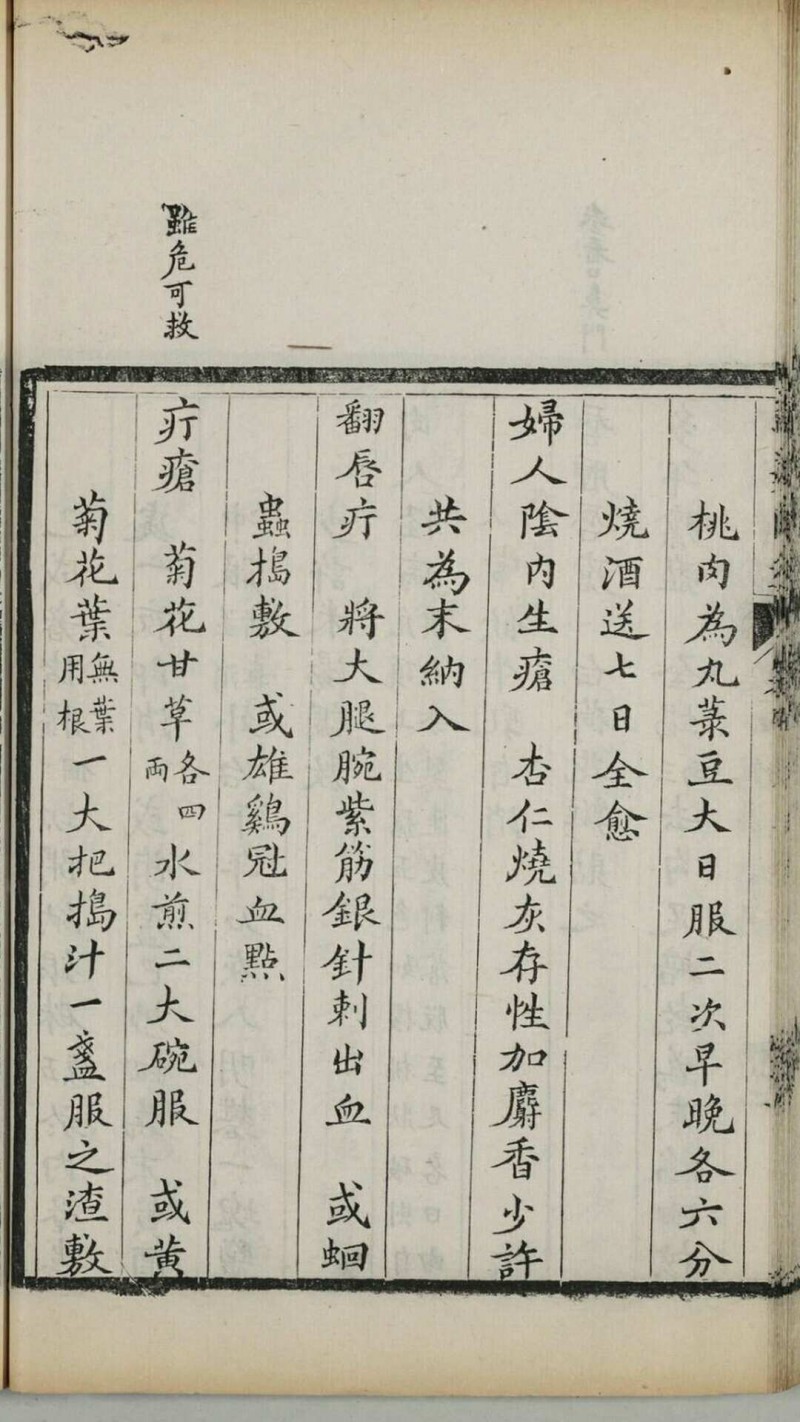 桃肉為丸菉豆大日服二次早晚各六分
燒酒送七日全愈
婦人陰內生瘡　杏仁燒灰存性加麝香少許
共為末納入
翻唇疔　將大腿腕紫筋銀針刺出血　或蛔
蟲搗敷　或雄鷄冠血點
疔瘡　菊花甘草各四兩水煎二大碗服　或黃
菊花葉無葉用根一大把搗汁一盞服之渣敷
雖危可救